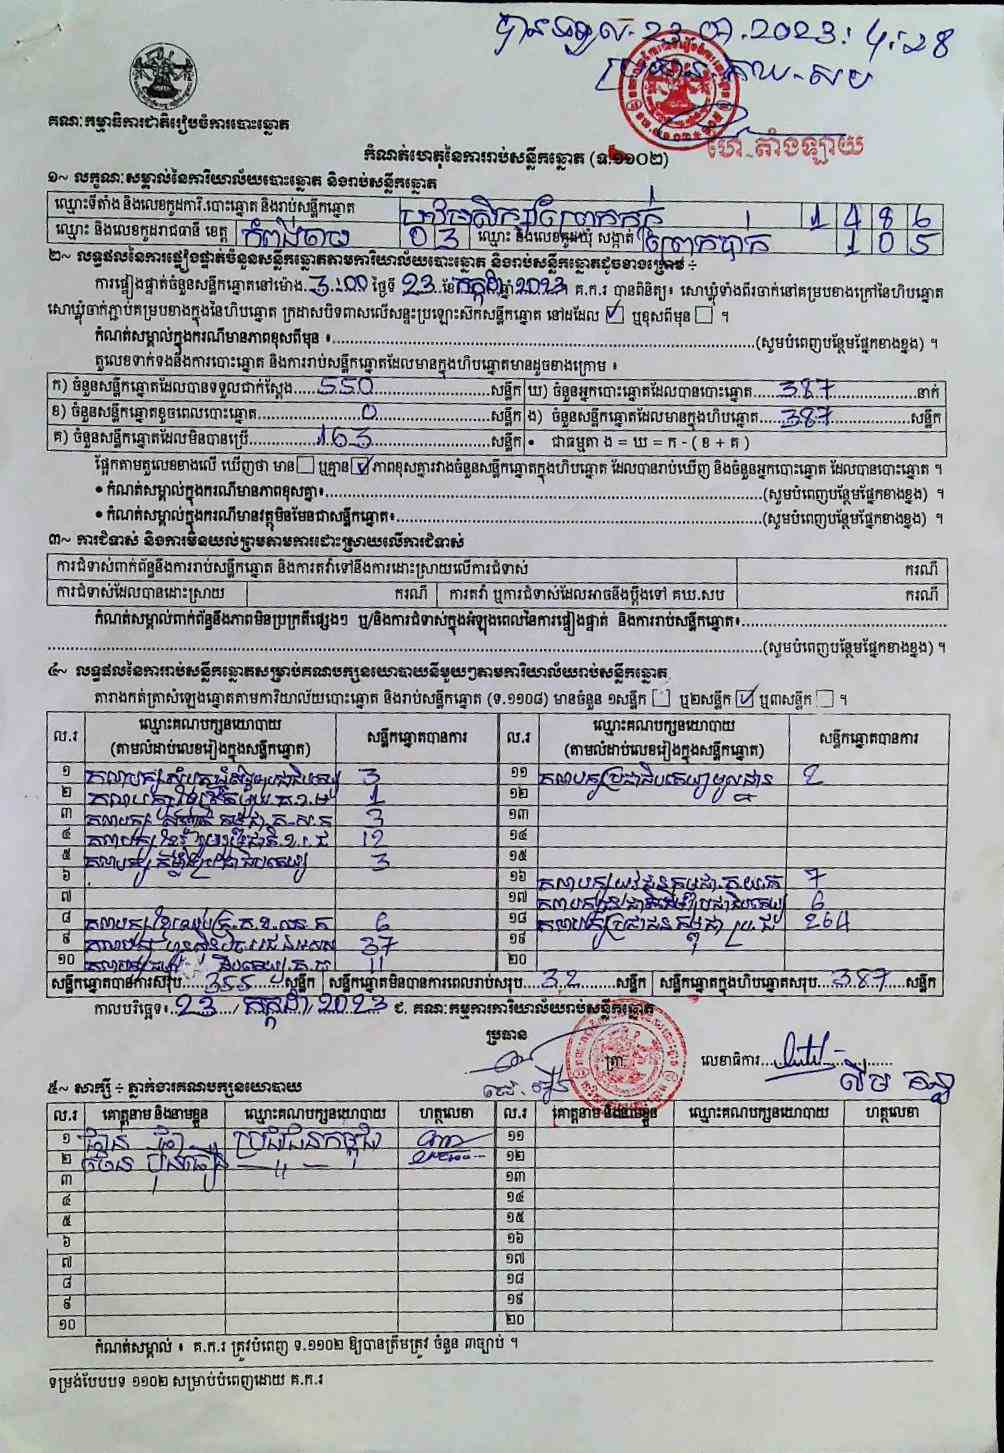 បានទទួល 23.៧.2023: 4:28
គណៈកម្មាធិការជាតិរៀបចំការបោះឆ្នោត
កំណត់ហេតុនៃការរាប់សន្លឹកឆ្នោត (ទ.១១០២)
១~ លក្ខណៈសម្គាល់នៃការិយាល័យបោះឆ្នោត និងរាប់សន្លឹកឆ្នោត
ឈ្មោះទីតាំង និងលេខកូដការិ.បោះឆ្នោត និងរាប់សន្លឹកឆ្នោត 1 4 8 6
ឈ្មោះ និងលេខកូដរាជធានី ខេត្ត កំពង់ចាម 0 3 ឈ្មោះ និងលេខកូដឃុំ សង្កាត់ ព្រែកបាក់ 1 0 5
២~ លទ្ធផលនៃការផ្ទៀងផ្ទាត់ចំនួនសន្លឹកឆ្នោតតាមការិយាល័យបោះឆ្នោត និងរាប់សន្លឹកឆ្នោតដូចខាងក្រោម ÷
ការផ្ទៀងផ្ទាត់ចំនួនសន្លឹកឆ្នោតនៅម៉ោង 3:00 ថ្ងៃទី 23 ខែ កក្កដា ឆ្នាំ 2023 ។ គ.ក.រ បានពិនិត្យ៖ សោឃ្លុំទាំងពីរចាក់នៅគម្របខាងក្រៅនៃហិបឆ្នោត
សោឃ្លុំចាក់ភ្ជាប់គម្របខាងក្នុងនៃហិបឆ្នោត ក្រដាសបិទពាសលើសន្ទះប្រឡោះសឹកសន្លឹកឆ្នោត នៅដដែល ☑ ឬខុសពីមុន ☐ ។
កំណត់សម្គាល់ក្នុងករណីមានភាពខុសពីមុន ៖ (សូមបំពេញបន្ថែមផ្នែកខាងខ្នង) ។
តួលេខទាក់ទងនឹងការបោះឆ្នោត និងការរាប់សន្លឹកឆ្នោតដែលមានក្នុងហិបឆ្នោតមានដូចខាងក្រោម ៖
ក) ចំនួនសន្លឹកឆ្នោតដែលបានទទួលជាក់ស្តែង 550 សន្លឹក ឃ) ចំនួនអ្នកបោះឆ្នោតដែលបានបោះឆ្នោត 387 នាក់
ខ) ចំនួនសន្លឹកឆ្នោតខូចពេលបោះឆ្នោត 0 សន្លឹក ង) ចំនួនសន្លឹកឆ្នោតដែលមានក្នុងហិបឆ្នោត 387 សន្លឹក
គ) ចំនួនសន្លឹកឆ្នោតដែលមិនបានប្រើ 163 សន្លឹក • ជាធម្មតា ង = ឃ = ក - ( ខ + គ )
ផ្អែកតាមតួលេខខាងលើ ឃើញថា មាន ☐ ឬគ្មាន ☑ ភាពខុសគ្នារវាងចំនួនសន្លឹកឆ្នោតក្នុងហិបឆ្នោត ដែលបានរាប់ឃើញ និងចំនួនអ្នកបោះឆ្នោត ដែលបានបោះឆ្នោត ។
• កំណត់សម្គាល់ក្នុងករណីមានភាពខុសគ្នា៖ (សូមបំពេញបន្ថែមផ្នែកខាងខ្នង) ។
• កំណត់សម្គាល់ក្នុងករណីមានវត្ថុមិនមែនជាសន្លឹកឆ្នោត៖ (សូមបំពេញបន្ថែមផ្នែកខាងខ្នង) ។
៣~ ការជំទាស់ និងការមិនយល់ព្រមតាមការដោះស្រាយលើការជំទាស់
ការជំទាស់ពាក់ព័ន្ធនឹងការរាប់សន្លឹកឆ្នោត និងការតវ៉ាទៅនឹងការដោះស្រាយលើការជំទាស់ ករណី
ការជំទាស់ដែលបានដោះស្រាយ ករណី ការតវ៉ា ឬការជំទាស់ដែលអាចនឹងប្តឹងទៅ គឃ.សប ករណី
កំណត់សម្គាល់ពាក់ព័ន្ធនឹងភាពមិនប្រក្រតីផ្សេងៗ ឬ/និងការជំទាស់ក្នុងអំឡុងពេលនៃការផ្ទៀងផ្ទាត់ និងការរាប់សន្លឹកឆ្នោត៖
(សូមបំពេញបន្ថែមផ្នែកខាងខ្នង) ។
៤~ លទ្ធផលនៃការរាប់សន្លឹកឆ្នោតសម្រាប់គណបក្សនយោបាយនីមួយៗតាមការិយាល័យរាប់សន្លឹកឆ្នោត
តារាងកត់ត្រាសំឡេងឆ្នោតតាមការិយាល័យបោះឆ្នោត និងរាប់សន្លឹកឆ្នោត (ទ.១១០៨) មានចំនួន ១សន្លឹក ☐ ឬ២សន្លឹក ☑ ឬ៣សន្លឹក ☐ ។
ល.រ ឈ្មោះគណបក្សនយោបាយ (តាមលំដាប់លេខរៀងក្នុងសន្លឹកឆ្នោត) សន្លឹកឆ្នោតបានការ ល.រ ឈ្មោះគណបក្សនយោបាយ (តាមលំដាប់លេខរៀងក្នុងសន្លឹកឆ្នោត) សន្លឹកឆ្នោតបានការ
១ 3 ១១ គណបក្សប្រជាធិបតេយ្យមូលដ្ឋាន 2
២ 1 ១២
៣ 3 ១៣
៤ 12 ១៤
៥ 3 ១៥
៦ ១៦ គណបក្សយុវជនកម្ពុជា 7
៧ ១៧ 6
៨ 6 ១៨ គណបក្សប្រជាជនកម្ពុជា 264
៩ 37 ១៩
១០ 11 ២០
សន្លឹកឆ្នោតបានការសរុប 355 សន្លឹក សន្លឹកឆ្នោតមិនបានការពេលរាប់សរុប 32 សន្លឹក សន្លឹកឆ្នោតក្នុងហិបឆ្នោតសរុប 387 សន្លឹក
កាលបរិច្ឆេទ៖ 23 / កក្កដា / 2023 ជ. គណៈកម្មការការិយាល័យរាប់សន្លឹកឆ្នោត
ប្រធាន
ត្រា លេខាធិការ
៥~ សាក្សី ÷ ភ្នាក់ងារគណបក្សនយោបាយ
ល.រ គោត្តនាម និងនាមខ្លួន ឈ្មោះគណបក្សនយោបាយ ហត្ថលេខា ល.រ គោត្តនាម និងនាមខ្លួន ឈ្មោះគណបក្សនយោបាយ ហត្ថលេខា
១ ប្រជាជនកម្ពុជា ១១
២ —"— ១២
៣ ១៣
៤ ១៤
៥ ១៥
៦ ១៦
៧ ១៧
៨ ១៨
៩ ១៩
១០ ២០
កំណត់សម្គាល់ ៖ គ.ក.រ ត្រូវបំពេញ ទ.១១០២ ឱ្យបានត្រឹមត្រូវ ចំនួន ៣ច្បាប់ ។
ទម្រង់បែបបទ ១១០២ សម្រាប់បំពេញដោយ គ.ក.រ